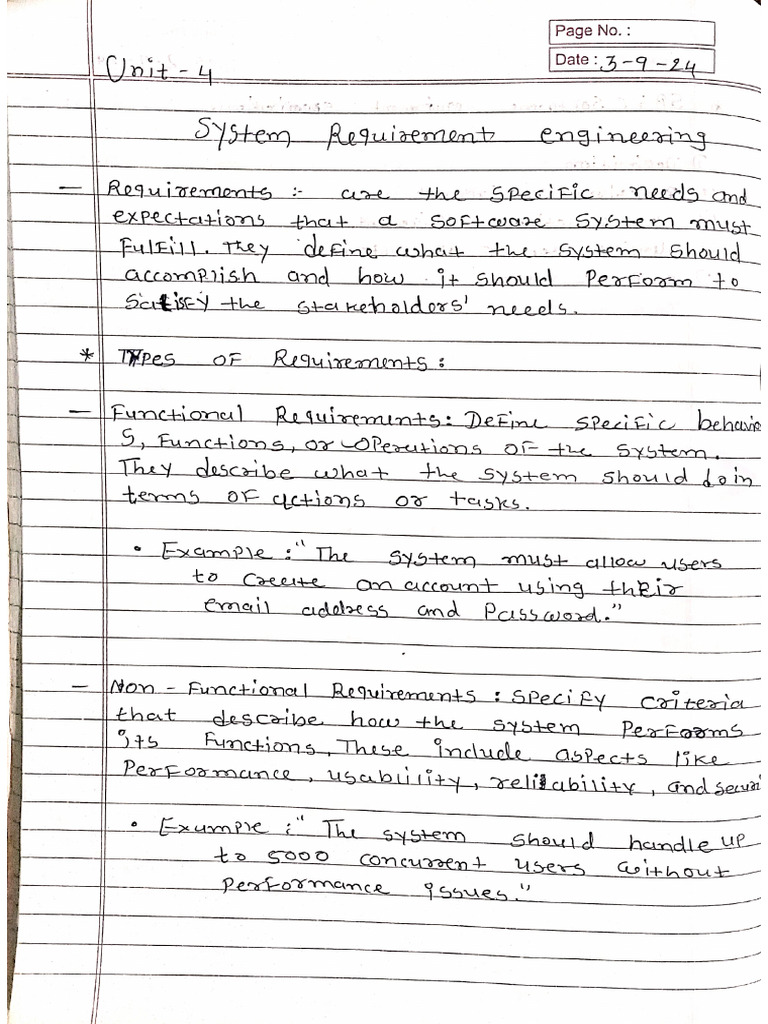 Page No. :
Date : 3-9-24
Unit - 4
System Requirement engineering
— Requirements :- are the specific needs and
expectations that a software system must
fulfill. They define what the system should
accomplish and how it should perform to
satisfy the stakeholders' needs.
* Types of Requirements :
— Functional Requirements : Define specific behavio
s, functions, or operations of the system.
They describe what the system should do in
terms of actions or tasks.
• Example : "The system must allow users
to create an account using their
email address and password."
— Non - Functional Requirements : specify criteria
that describe how the system performs
its functions, These include aspects like
performance, usability, reliability, and securi
• Example : " The system should handle up
to 5000 concurrent users without
performance issues."